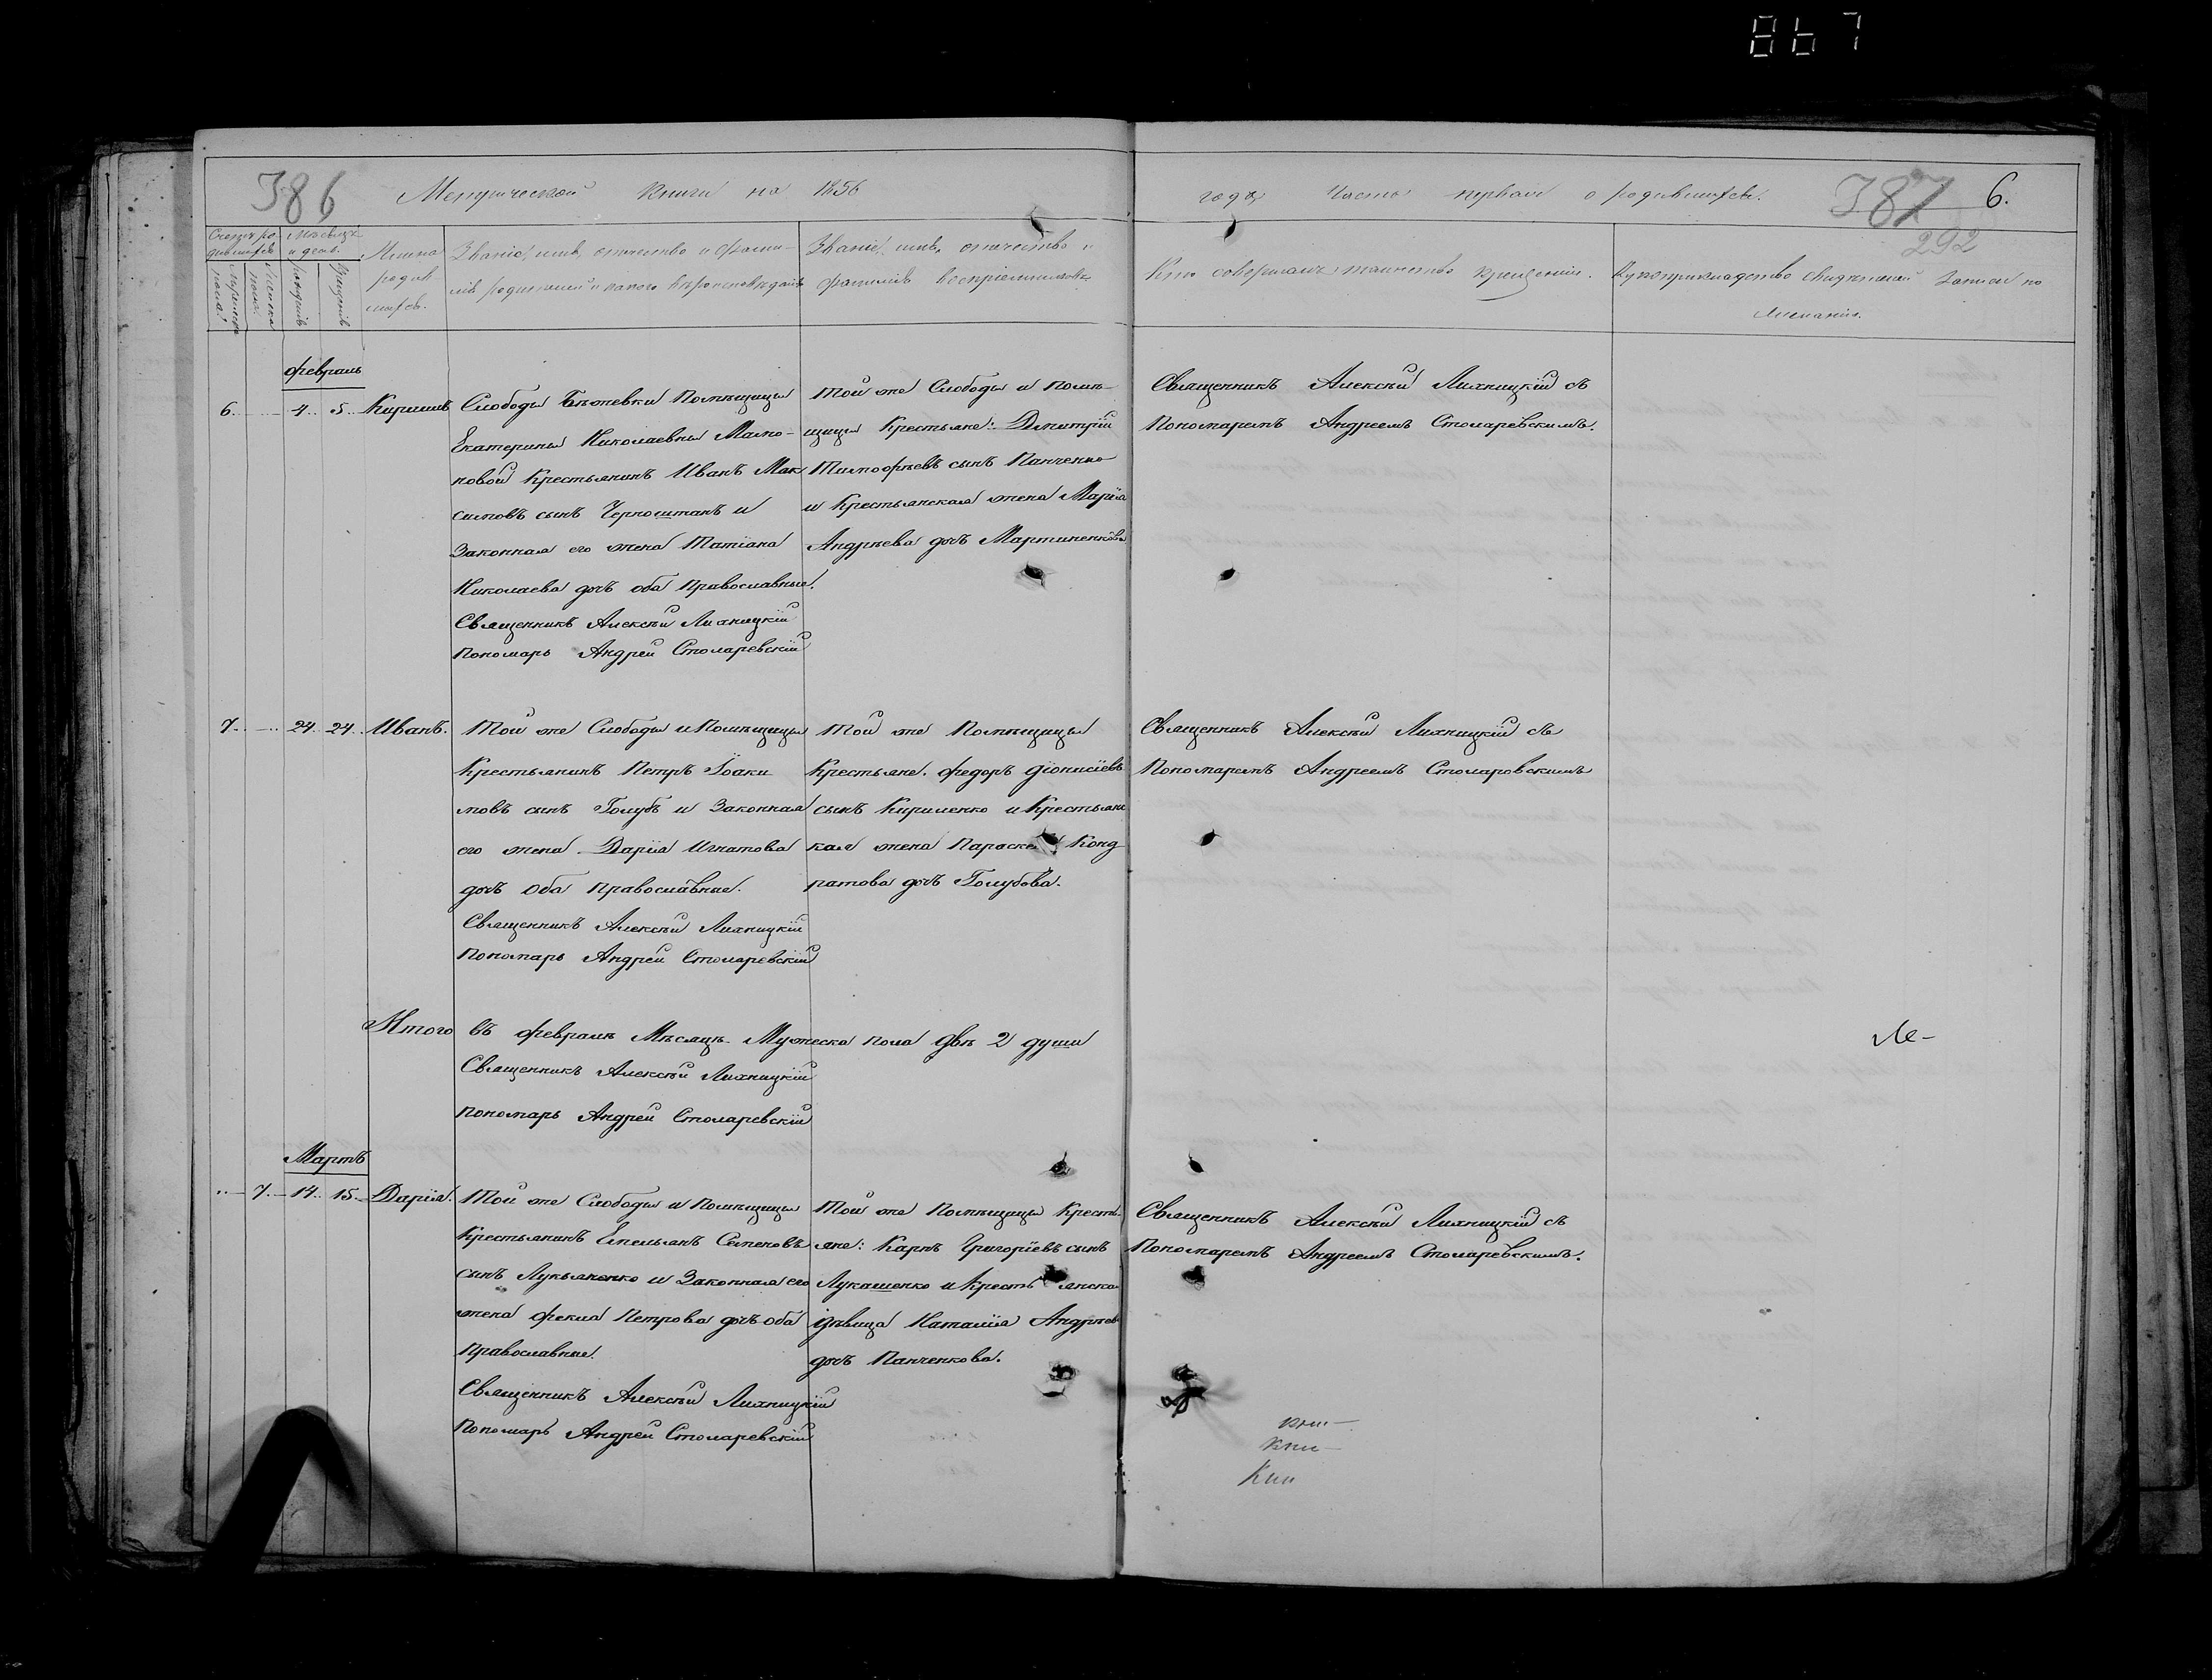 867
386 Метрической Книги на 1856
года Часть первая о родившихся. 387 6.
292
Счетъ ро-
дившихся
Мѣсяцъ
и день.
мужеска
пола.
женска
пола.
рожденія
крещенія
Имена
родив
шихся.
Званіе, имя, отчество и фами-
лія родителей и какого вѣроисповѣданія
Званіе, имя, отчество и
фамилія воспріемниковъ
Кто совершалъ таинство крещенія.
Рукоприкладство свидѣтелей записи по
желанію.
Февраль
6. 4. 5. Кириллъ
Слободы Бѣжевки Помѣщицы
Екатерины Николаевны
Крестьянинъ Иванъ Мак
симовъ сынъ Черноштанъ и
Законная его жена Татіана
Николаева дочь оба Православные.
Священникъ Алексѣй Лихницкій
Пономарь Андрей Столаревскій
Той же Слободы и Помѣ-
щицы Крестьяне: Дмитрій
Тимофѣевъ сынъ Панченко
и Крестьянская жена Марія
Андрѣева дочь Мартиненкова
Священникъ Алексѣй Лихницкій съ
Пономаремъ Андреемъ Столаревскимъ.
7. 24. 24. Иванъ.
Той же Слободы и Помѣщицы
Крестьянинъ Петръ Іоаки
мовъ сынъ Голубъ и Законная
его жена Дарія Игнатова
дочь Оба Православные.
Священникъ Алексѣй Лихницкій
Пономарь Андрей Столаревскій
Той же Помѣщицы
Крестьяне. Федоръ Діонисіевъ
сынъ Кириленко и Крестьянс
кая жена Параске Конд
ратова дочь Голубова.
Священникъ Алексѣй Лихницкій съ
Пономаремъ Андреемъ Столаровскимъ
Итого въ Февралѣ Мѣсяцѣ Мужеска пола двѣ 2 души
Священникъ Алексѣй Лихницкій
Пономарь Андрей Столаревскій
Мартъ
7. 14. 15. Дарія.
Той же Слободы и Помѣщицы
Крестьянинъ Емельянъ Семеновъ
сынъ Лукьяненко и Законная его
жена Фекла Петрова дочь оба
Православные.
Священникъ Алексѣй Лихницкій
Пономарь Андрей Столаревскій
Той же Помѣщицы Кресть-
яне: Карпъ Григоріевъ сынъ
Лукашенко и Кресть янска
дѣвица Наталія Андрѣев
дочь Панченкова.
Священникъ Алексѣй Лихницкій съ
Пономаремъ Андреемъ Столаревскимъ.
кни-
кни-
Кни